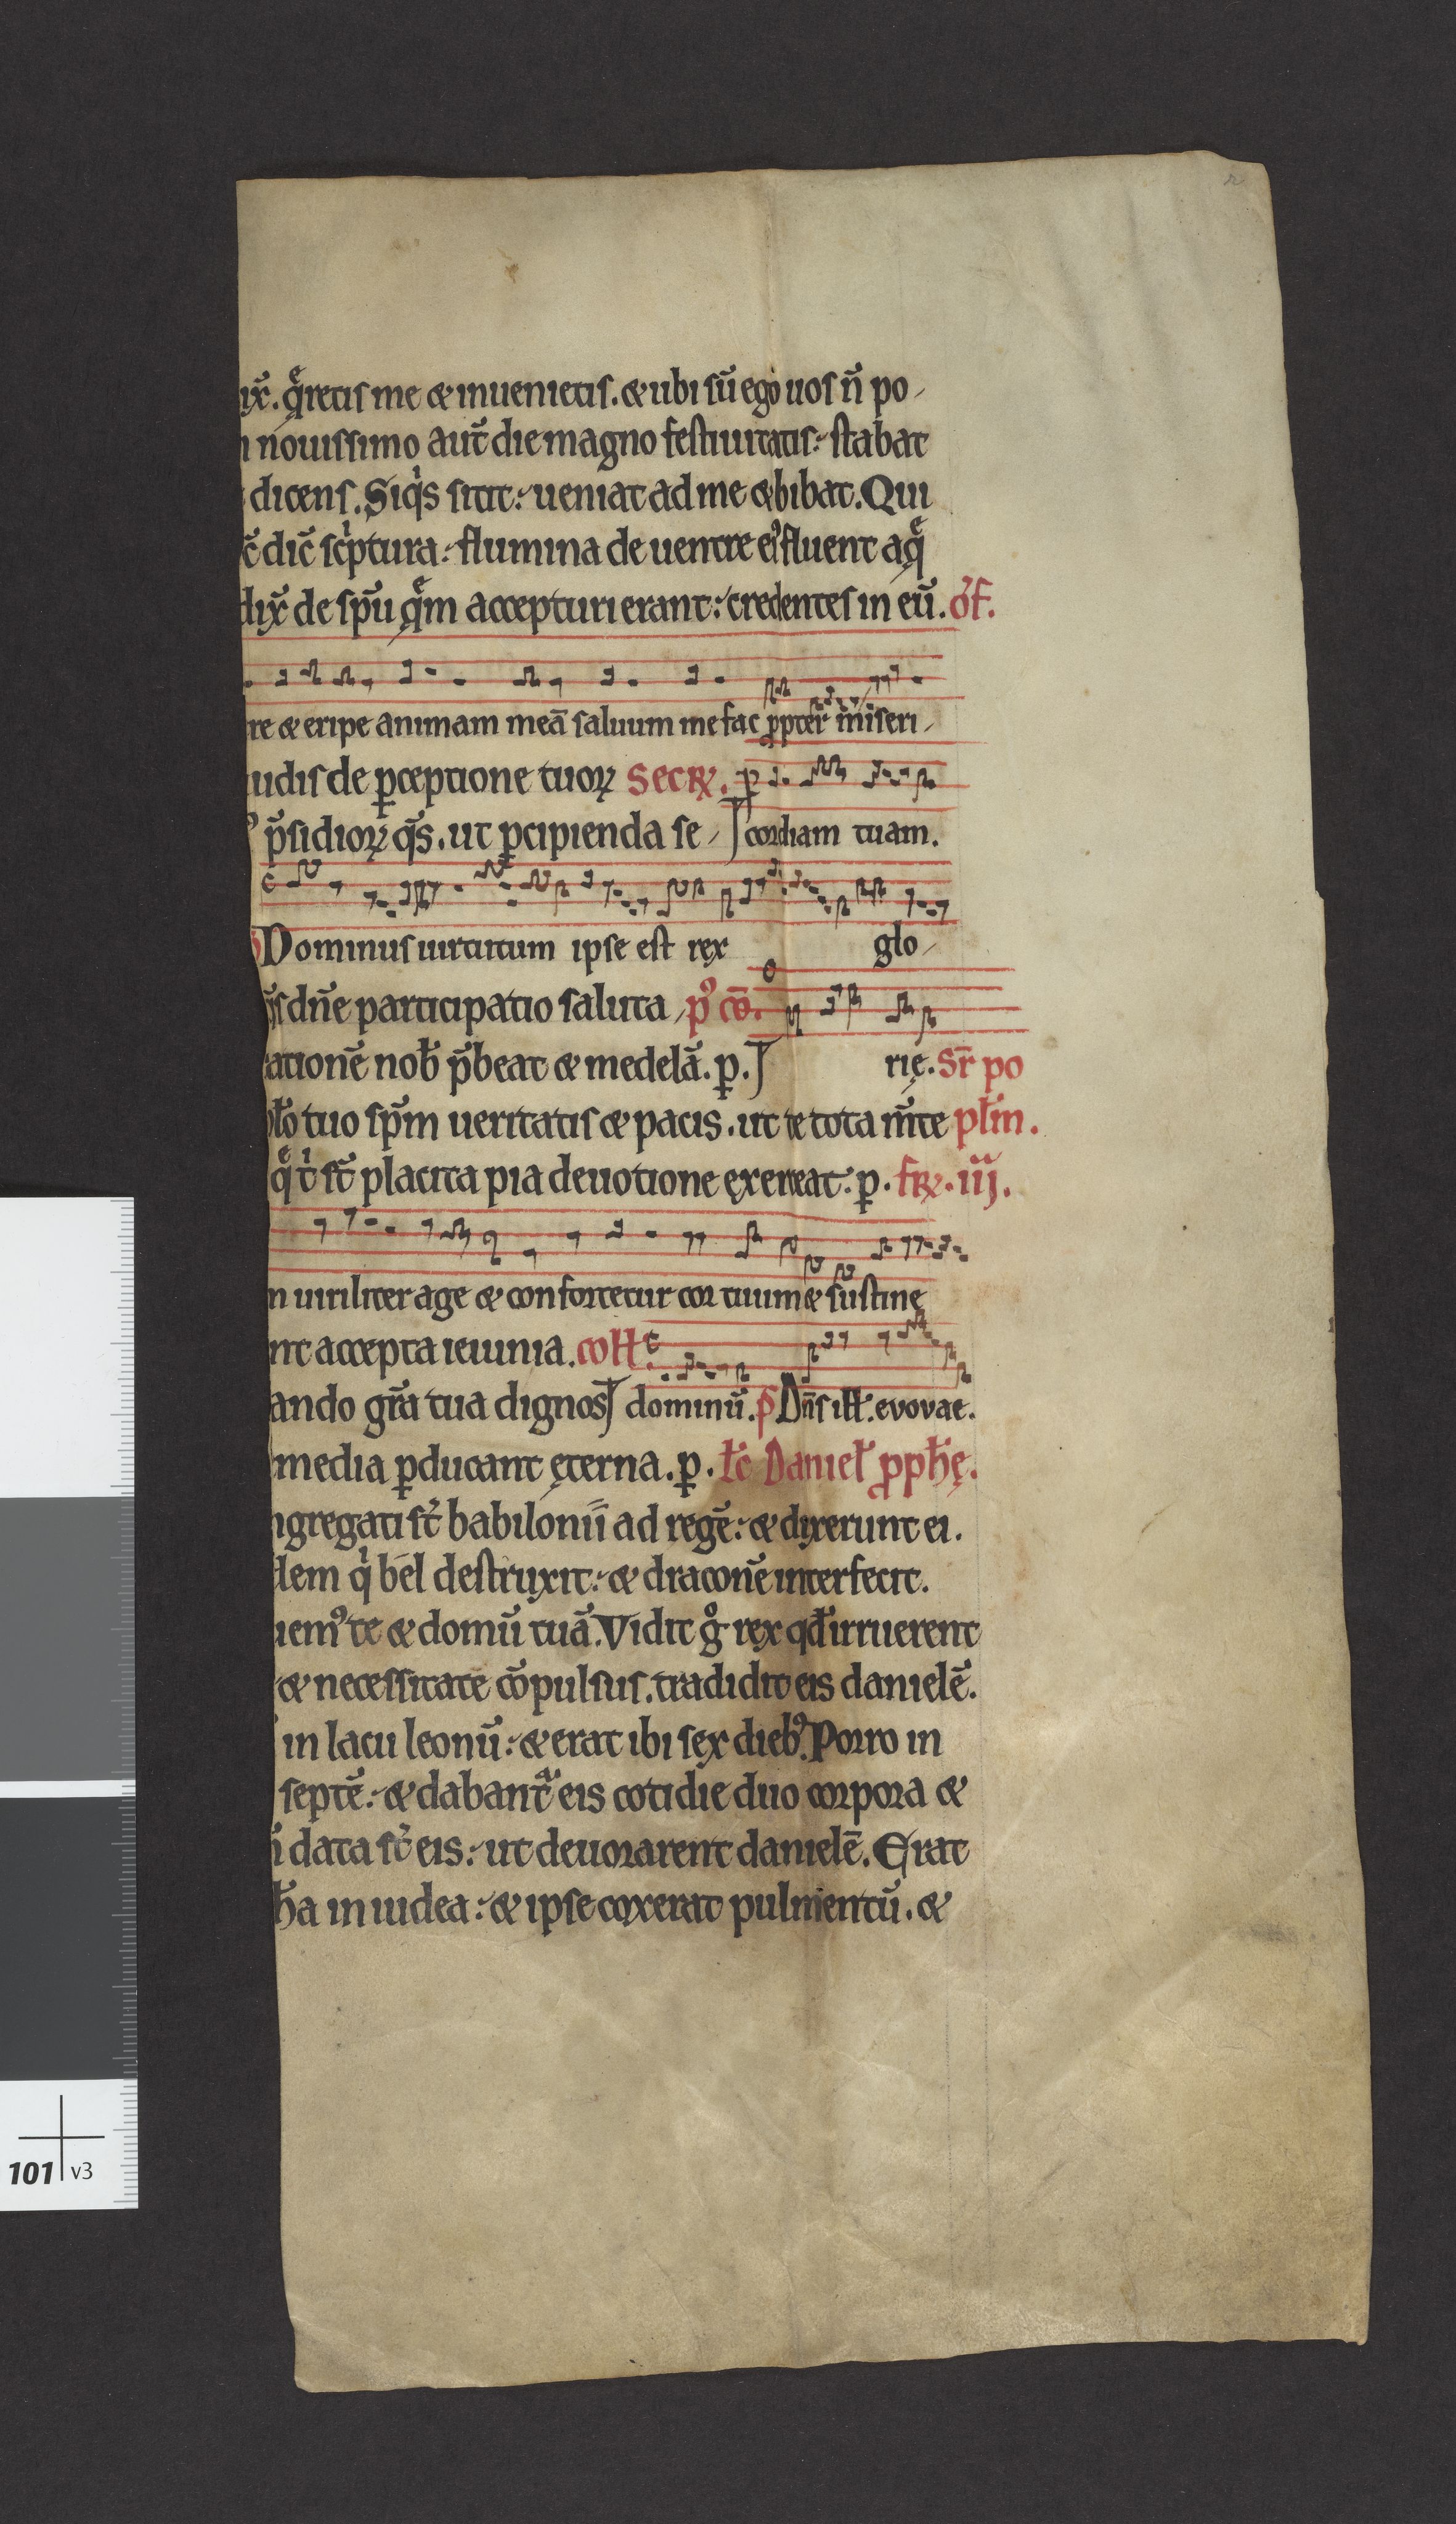 ix̄. qͤretis me & inuenietis. & ubi sū ego uos n̄ po-
nouissimo aut̄ die magno festiuitatis: stabat
dicens. Siqͥs sitit: ueniat ad me & bibat. Qui
c̄ dic̄ scͥptura: flumina de uentre eiꝰ fluent aqͤ
dix̄ de spū qͤm accepturi erant: credentes in eū. of.
re & eripe animam meā saluum me fac ꝓpter miseri-
udis de ꝑceptione tuoꝝ Secꝝ.
p̄sidioꝝ qs̄. ut ꝑcipienda se- cordiam tuam.
Dominus uirtutum ipse est rex glo-
dn̄e participatio saluta- pꝰ cō.
ationē nob̄ p̄beat & medelā. ꝑ. rię. Sr̄ po
ło tuo spm̄ ueritatis & pacis. ut te tota m̄te plm̄.
qͤ tͥ st̄ placita pia deuotione exerceat. ꝑ. fꝝ. iij.
n uiriliter age & confortetur cor tuum & sustine
nt accepta ieiunia. coll̄.
ando gr̄a tua dignos dominū. p̄ Dn̄s ill̄. evovae.
media ꝑducant ęterna. ꝑ. łc Danieł ꝓph̄ę.
ngregati st̄ babilonii ad regē: & dixerunt ei.
lem qͥ bel destruxit: & draconē interfecit.
iemꝰ te & domū tuā. Vidit gͦ rex qđ irruerent
& necessitate cōpulsus. tradidit eis danielē.
in lacu leonū: & erat ibi sex diebꝰ. Porro in
septē: & dabant̄ eis cotidie duo corpora &
data st̄ eis: ut deuorarent danielē. Erat
h̄a in iudea: & ipse coxerat pulmentū. &
101 v3